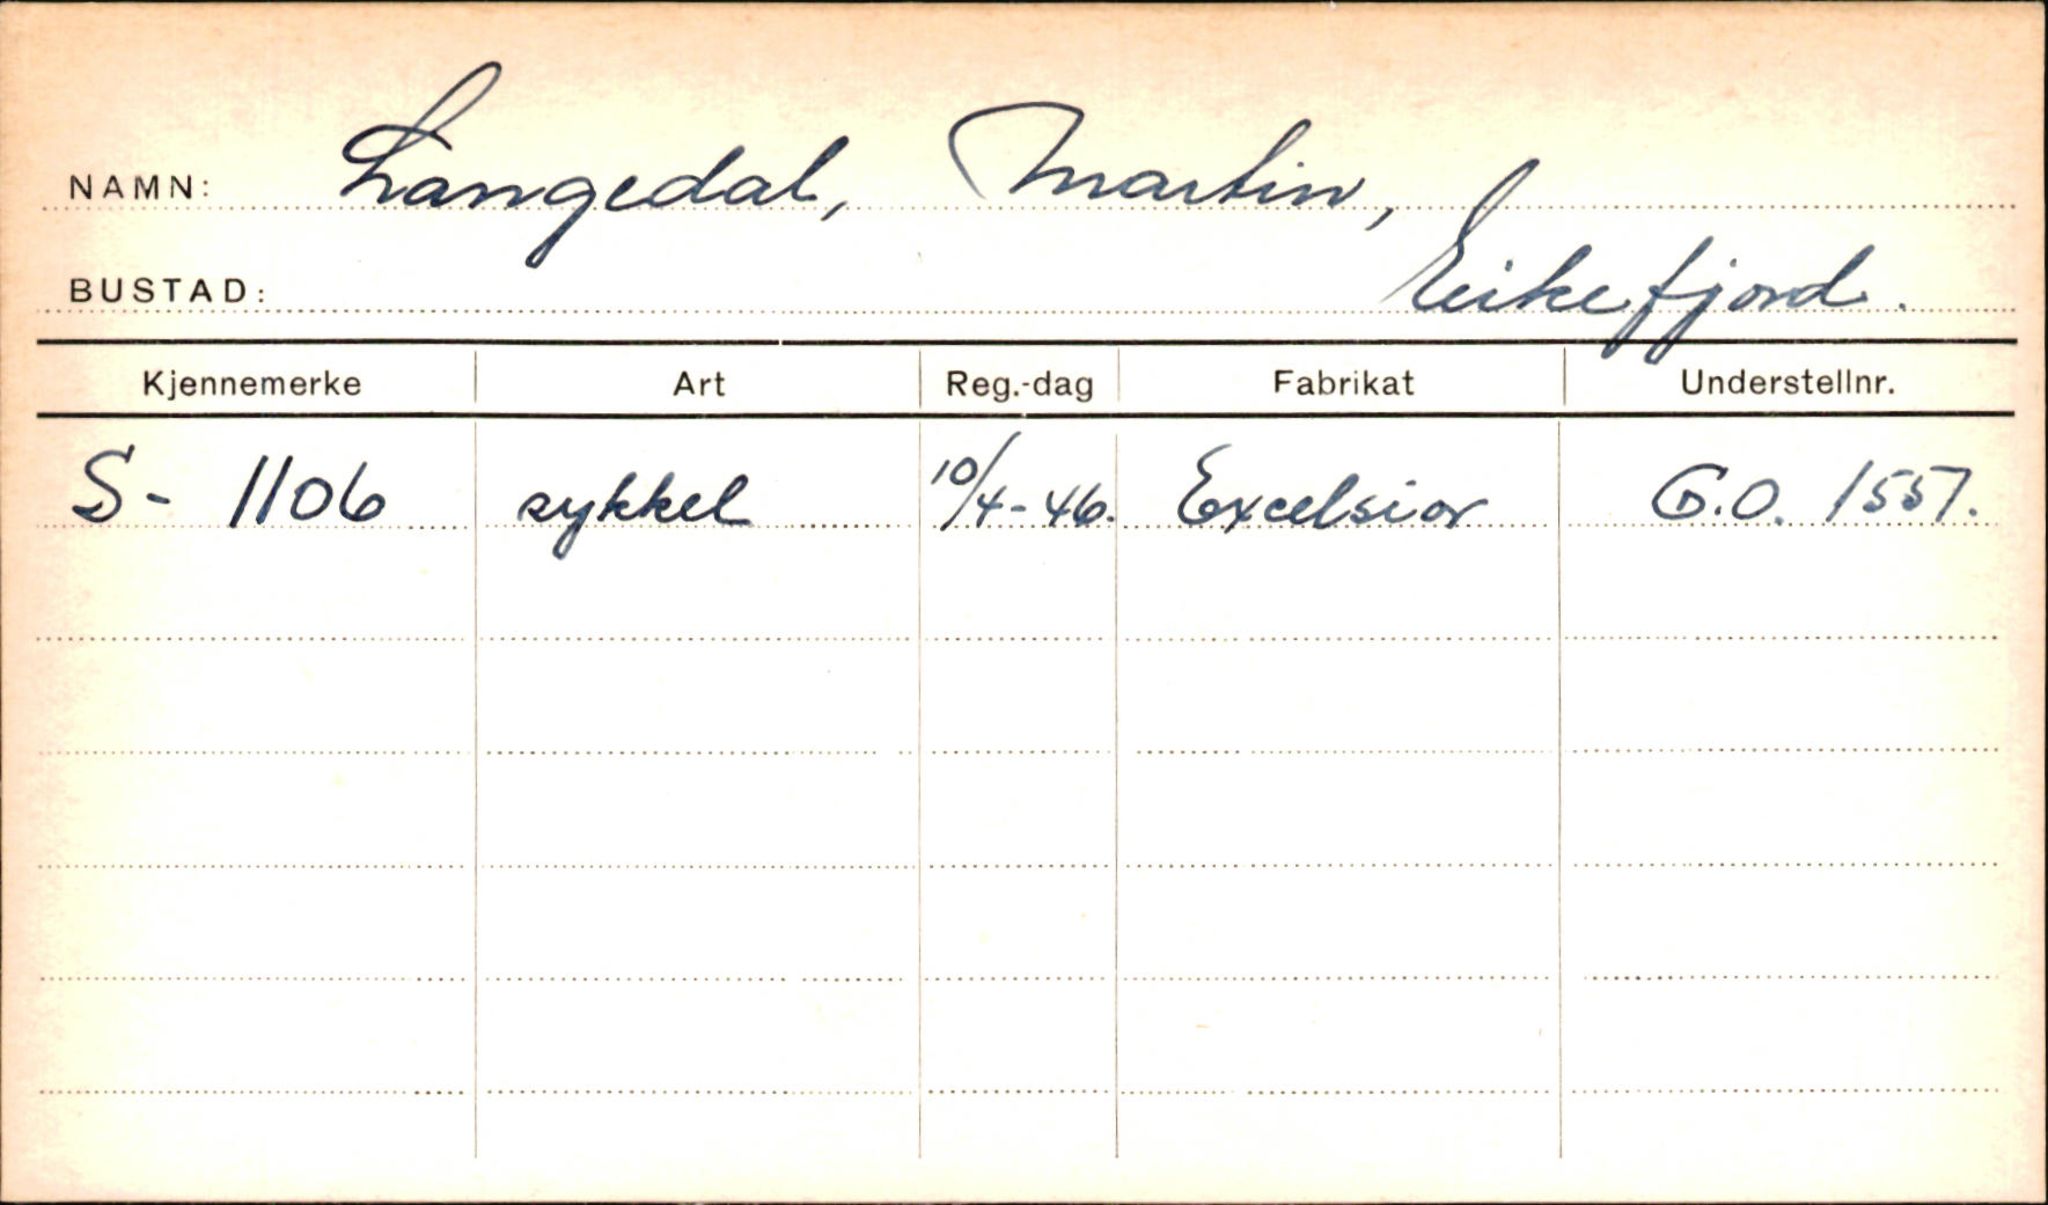 NAMN: Langedal, Martin,
BUSTAD: Eikefjord.
Kjennemerke Art Reg.-dag Fabrikat Understellnr.
S- 1106 sykkel 10/4-46. Excelsior G.O. 1557.